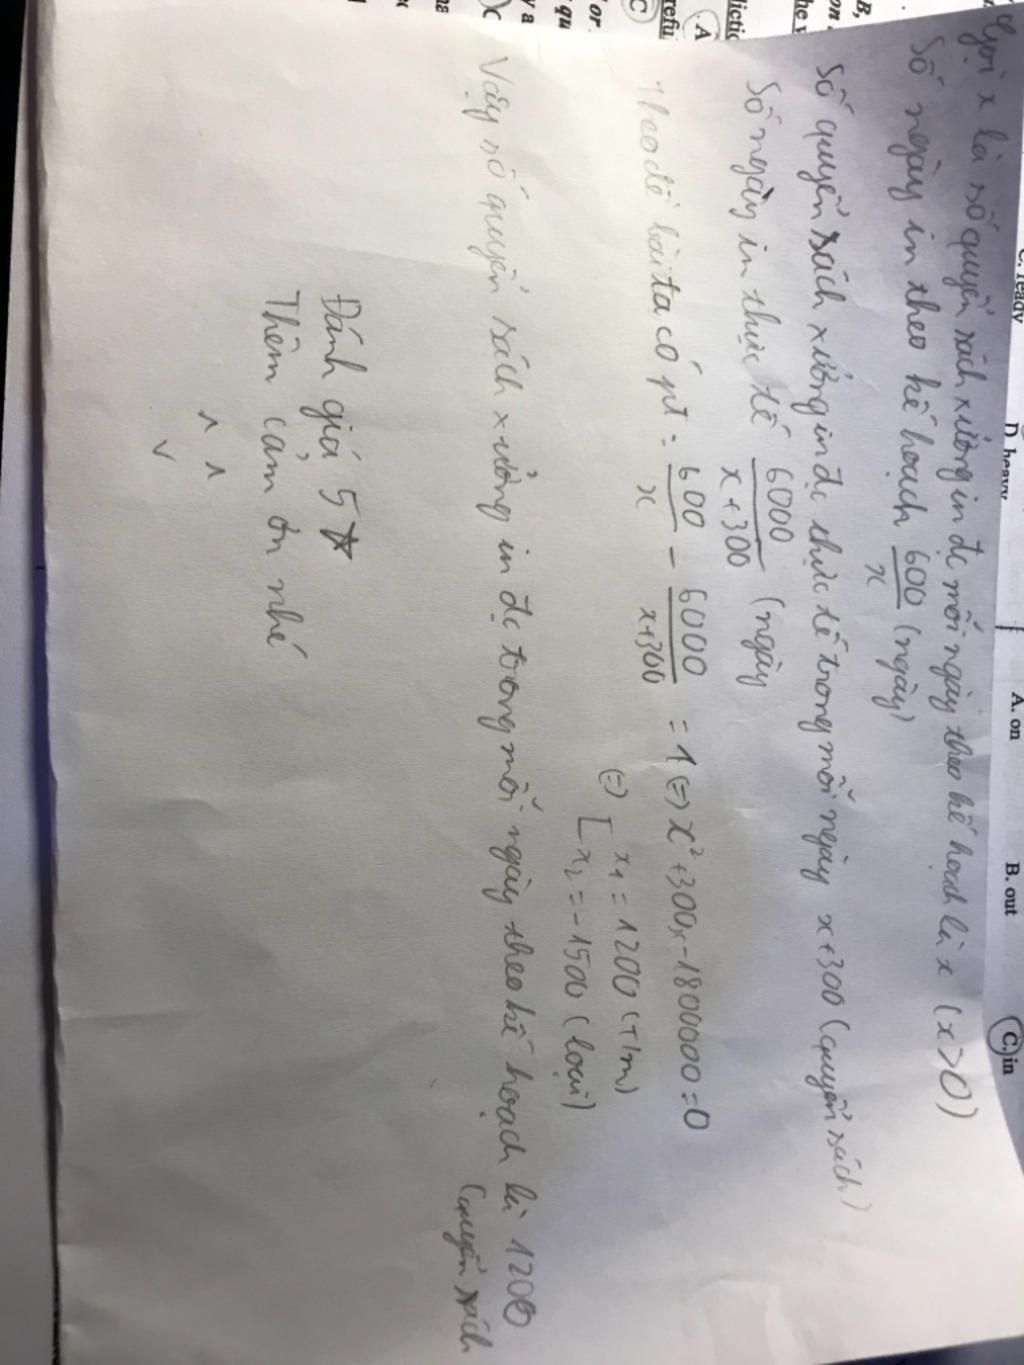 Gọi x là số quyển sách xưởng in đc mỗi ngày theo kế hoạch là x (x>0)
Số ngày in theo kế hoạch 600/x (ngày)
Số quyển sách xưởng in đc thực tế trong mỗi ngày x+300 (quyển sách)
Số ngày in thực tế 6000/x+300 (ngày
Theo đề bài ta có pt: 600/x - 6000/x+300 = 1 (=) x²+300x-1800000=0
(=) [ x1 = 1200 (T/m)
x2 = -1500 (loại)
Vậy số quyển sách xưởng in đc trong mỗi ngày theo kế hoạch là 1200
(quyển sách
Đánh giá 5☆
Thêm cảm ơn nhé
^ ^
v
C. ready
D. heavy
A. on
B. out
C. in
B,
on
he
A
C
refu
or
qu
y a